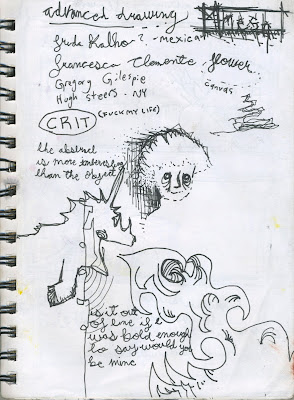 advanced drawing
frida Kalho? - mexican
francesca Clemente, flower
Gregory Gillespie
Hugh Steers - NY
canvas
CRIT (FUCK MY LIFE)
the abstract
is more interesting
than the object
is it out
of line if I
was bold enough
to say would you
be mine